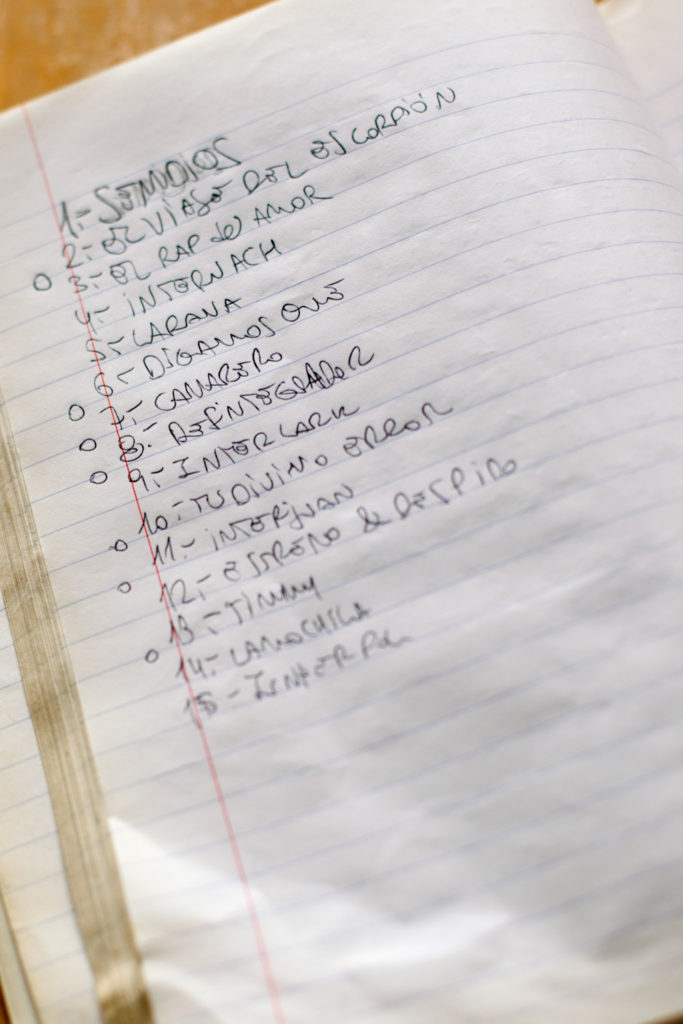 1.- SEMIDIOS
2.- EL VIAJE DEL ESCORPIÓN
3.- EL RAP del AMOR
4.- INTERNACH
5.- LARANA
6.- DIGAMOS QUE
7.- CAMARERO
8.- DESINTEGRADOR
9.- INTERLARK
10.- TU DIVINO ERROR
11.- INTERJUAN
12.- ESTRENO & DESPIDO
13.- TIMMY
14.- LAMOCHILA
15.-